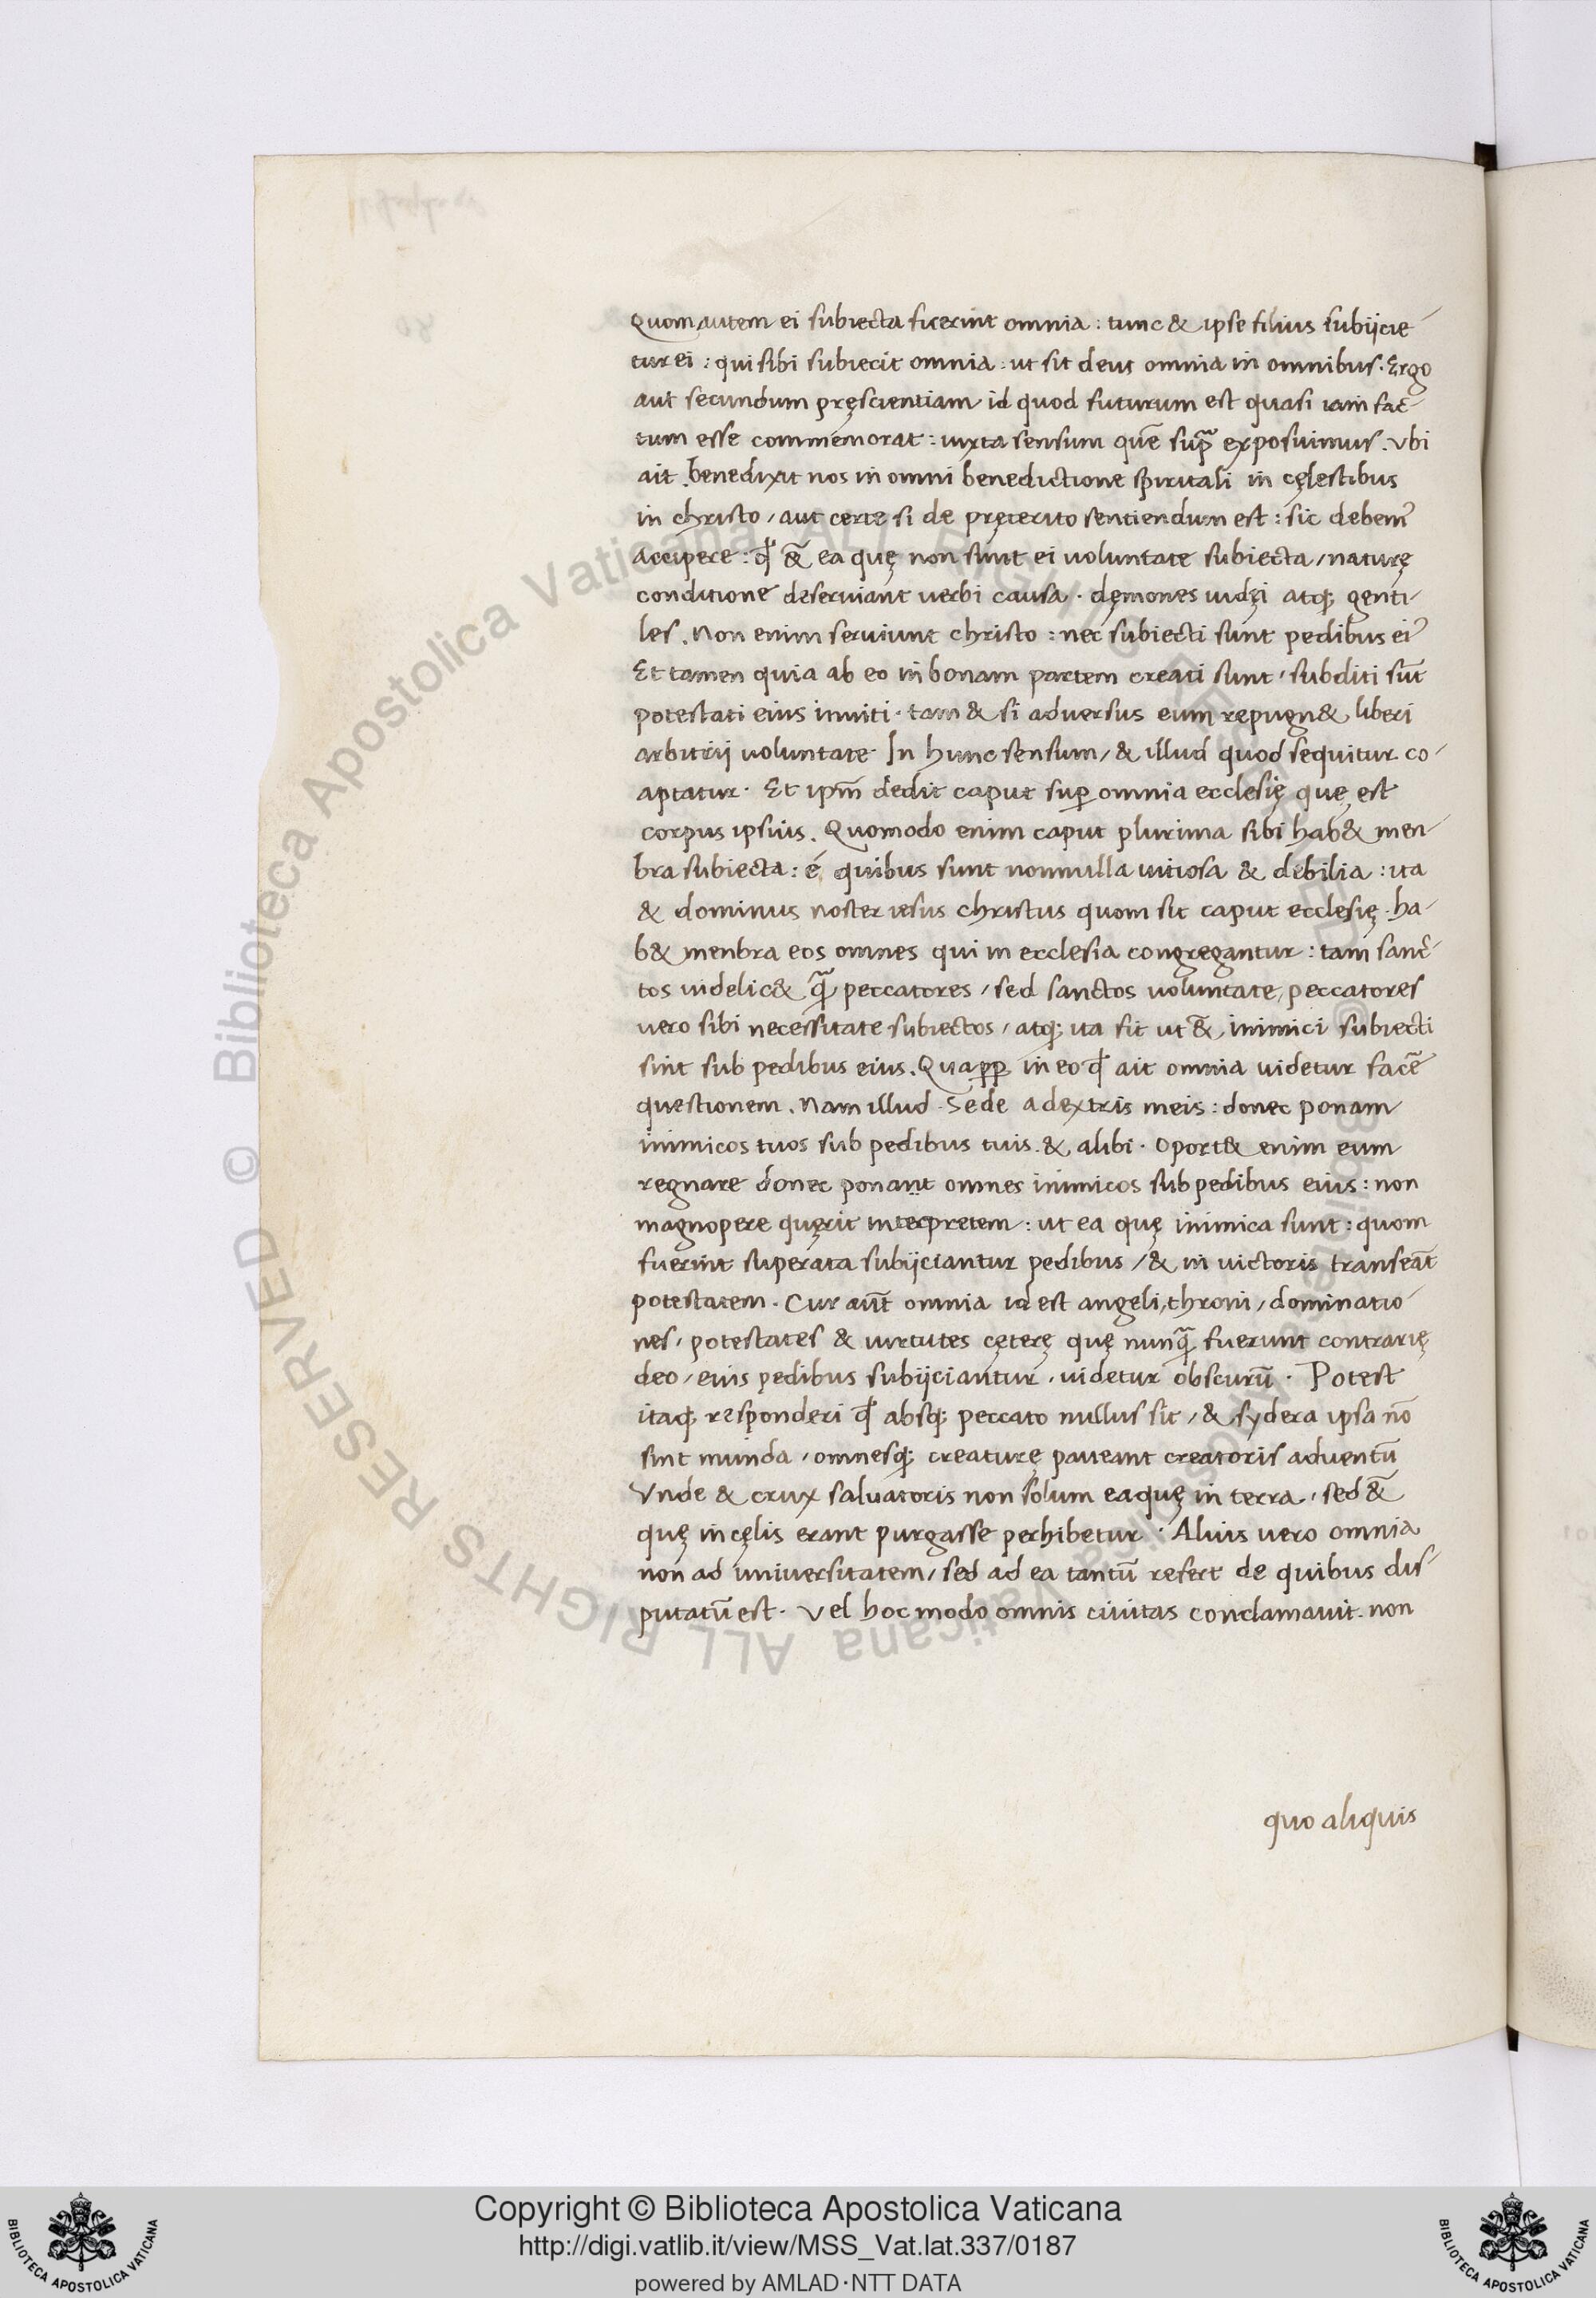 Quom autem ei subiecta fuerint omnia : tunc & ipse filius subijcie-
tur ei : qui sibi subiecit omnia : ut sit deus omnia in omnibus . Ergo
aut secundum pręscientiam id quod futurum est quasi iam fac-
tum esse commemorat : iuxta sensum quē sup̄ exposuimus . Vbi
ait . benedixit nos in omni benedictione spiritali in cęlestibus
in christo / aut certe si de pręterito sentiendum est : sic debem᷒
accipere : ꝙ &̄ ea quę non sunt ei voluntate subiecta / naturę
conditione deserviant verbi causa . dęmones iudęi atq; genti-
les . Non enim serviunt christo : nec subiecti sunt pedibus ei᷒
Et tamen quia ab eo in bonam partem creati sunt / subditi sūt
potestati eius inviti . tam & si adversus eum repugn& liberi
arbitrij voluntate . In hunc sensum / & illud quod sequitur co-
aptatur . Et ip̄m dedit caput sup̱ omnia ecclesię quę est
corpus ipsius . Quomodo enim caput plurima sibi hab& men-
bra subiecta : é quibus sunt nonnulla vitiosa & debilia : ita
& dominus noster iesus christus quom sit caput ecclesię . ha-
b& menbra eos omnes qui in ecclesia congregantur : tam sanc-
tos videlic& q̄ peccatores / sed sanctos voluntate / peccatores
vero sibi necessitate subiectos / atq; ita fit ut &̄ inimici subiecti
sint sub pedibus eius . Quaꝓp̱ in eo ꝙ ait omnia videtur facē
questionem . Nam illud . Sede a dextris meis : donec ponam
inimicos tuos sub pedibus tuis . & alibi . Oport& enim eum
regnare donec ponant omnes inimicos sub pedibus eius : non
magnopere quęrit interpretem : ut ea quę inimica sunt : quom
fuerint superata subijciantur pedibus / & in victoris transeāt
potestatem . Cur aūt omnia id est angeli, throni / dominatio-
nes / potestates & virtutes cęterę quę nunq̄ fuerunt contrarię
deo / eius pedibus subijciantur . videtur obscurū . Potest
itaq; responderi ꝙ absq; peccato nullus sit / & sydera ipsa nō
sint munda / omnesq; creaturę paveant creatoris adventū
Vnde & crux salvatoris non solum ea quę in terra / sed &̄
quę in cęlis erant purgasse perhibetur . Alius vero omnia
non ad universitatem / sed ad ea tantū refert de quibus dis-
putatū est . Vel hoc modo omnis civitas conclamavit . non
quo aliquis
© Biblioteca Apostolica Vaticana ALL RIGHTS RESERVED © Biblioteca Apostolica Vaticana ALL RIGHTS RESERVED
Copyright © Biblioteca Apostolica Vaticana
http://digi.vatlib.it/view/MSS_Vat.lat.337/0187
powered by AMLAD·NTT DATA
BIBLIOTECA APOSTOLICA VATICANA
BIBLIOTECA APOSTOLICA VATICANA